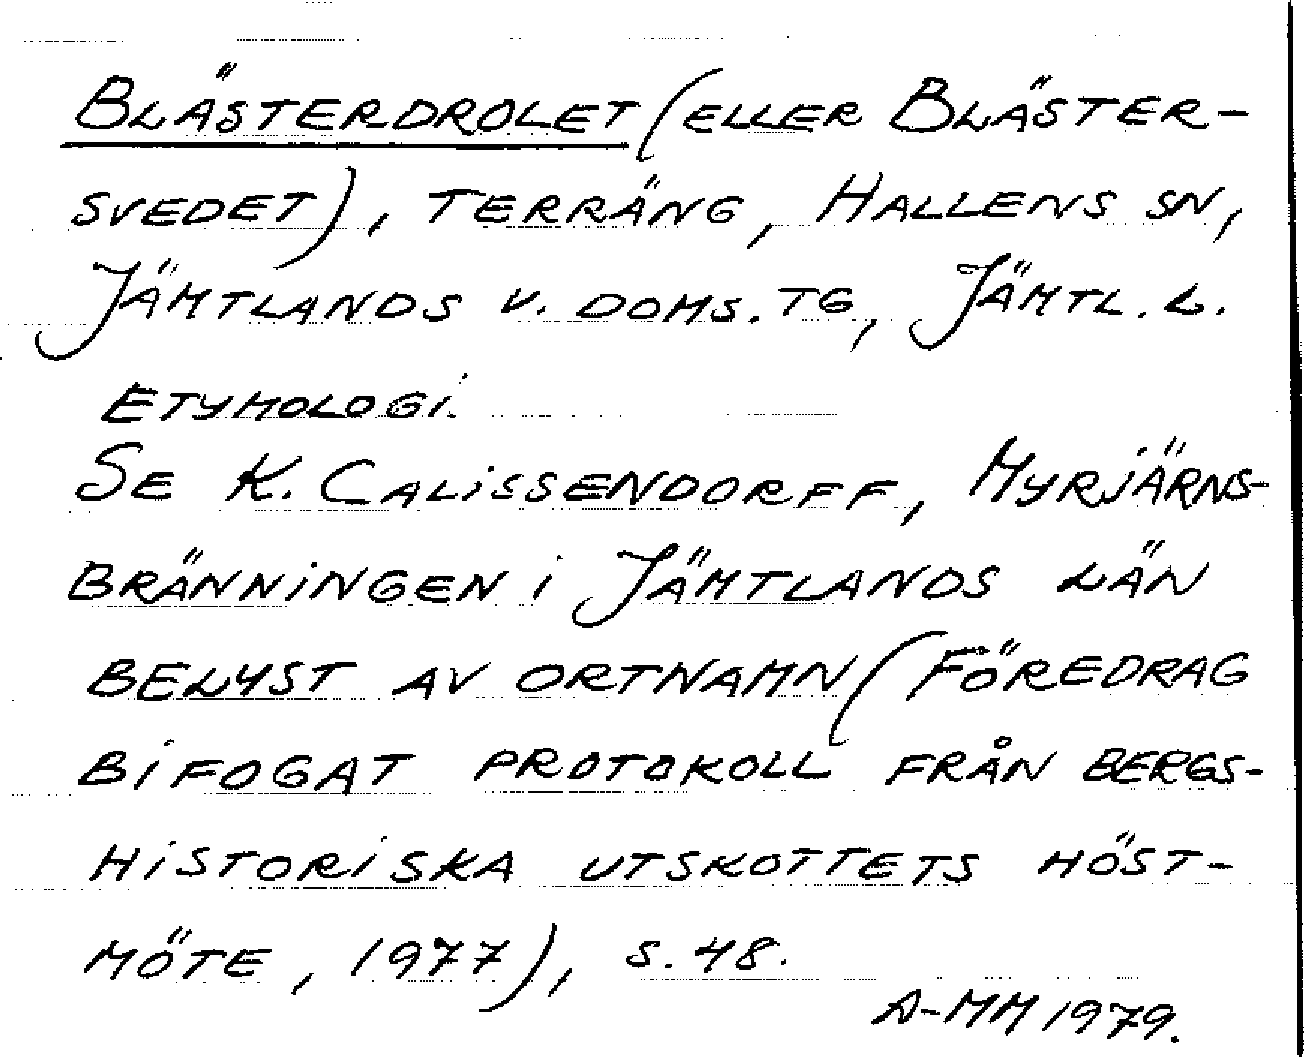 BLÄSTERDROLET (ELLER BLÄSTER-
SVEDET), TERRÄNG, HALLENS SN,
JÄMTLANDS V. DOMS. TG, JÄMTL. L.
ETYMOLOGI.
SE K. CALISSENDORFF, MYRJÄRNS-
BRÄNNINGEN I JÄMTLANDS LÄN
BELYST AV ORTNAMN (FÖREDRAG
BIFOGAT PROTOKOLL FRÅN BERGS-
HISTORISKA UTSKOTTETS HÖST-
MÖTE, 1977), S. 48.
A-MM 1979.